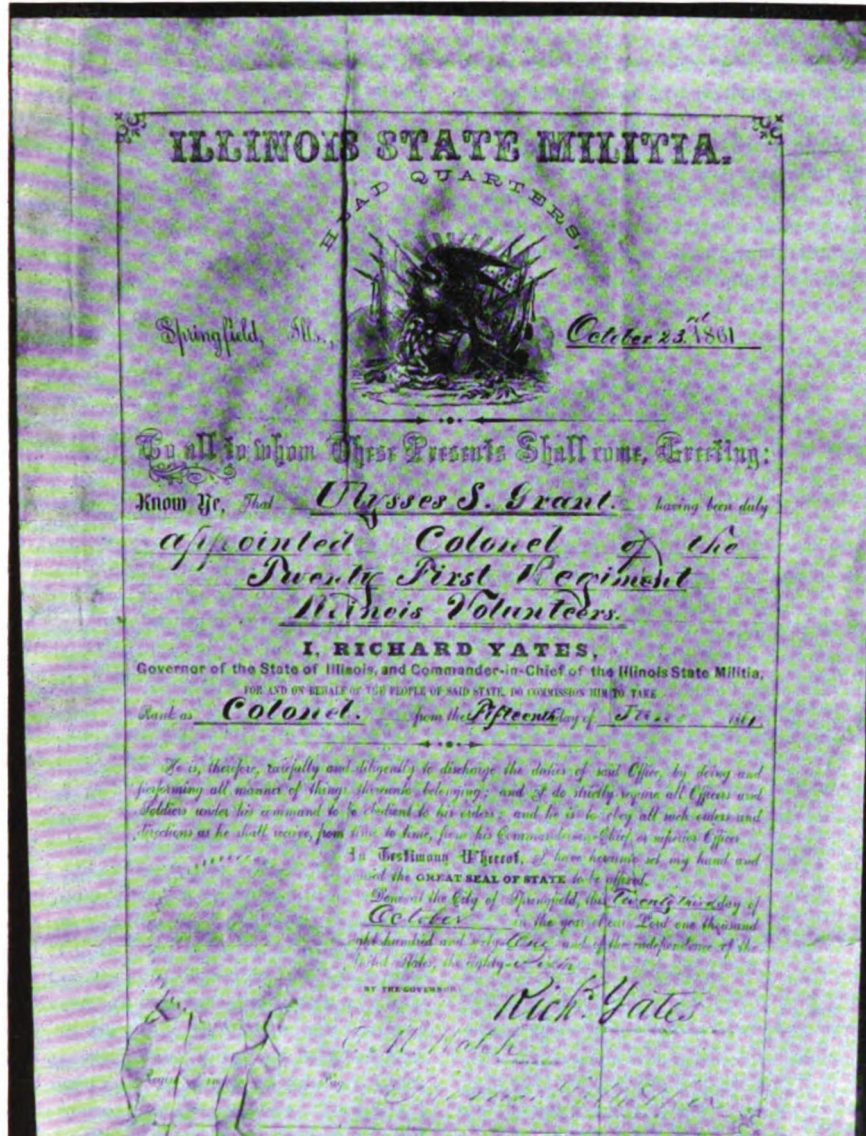 ILLINOIS STATE MILITIA.
HEAD QUARTERS,
Springfield, Ills., October 23rd 1861
To all to whom These Presents Shall come, Greeting:
Know Ye, That Ulysses S. Grant. having been duly
appointed Colonel of the
Twenty First Regiment
Illinois Volunteers.
I, RICHARD YATES,
Governor of the State of Illinois, and Commander-in-Chief of the Illinois State Militia,
FOR AND ON BEHALF OF THE PEOPLE OF SAID STATE, DO COMMISSION HIM TO TAKE
Rank as Colonel. from the Fifteenth day of June 1861
He is, therefore, carefully and diligently to discharge the duties of said Office, by doing and
performing all manner of things thereunto belonging; and I do strictly require all Officers and
Soldiers under his command to be obedient to his orders; and he is to obey all such orders and
directions as he shall receive, from time to time, from his Commander-in-Chief, or superior Officer.
In Testimony Whereof, I have hereunto set my hand and
caused the GREAT SEAL OF STATE to be affixed.
Done at the City of Springfield, this Twenty third day of
October in the year of our Lord one thousand
eight hundred and sixty-One and of the independence of the
United States, the eighty-
BY THE GOVERNOR
Richd. Yates
O. M. Hatch